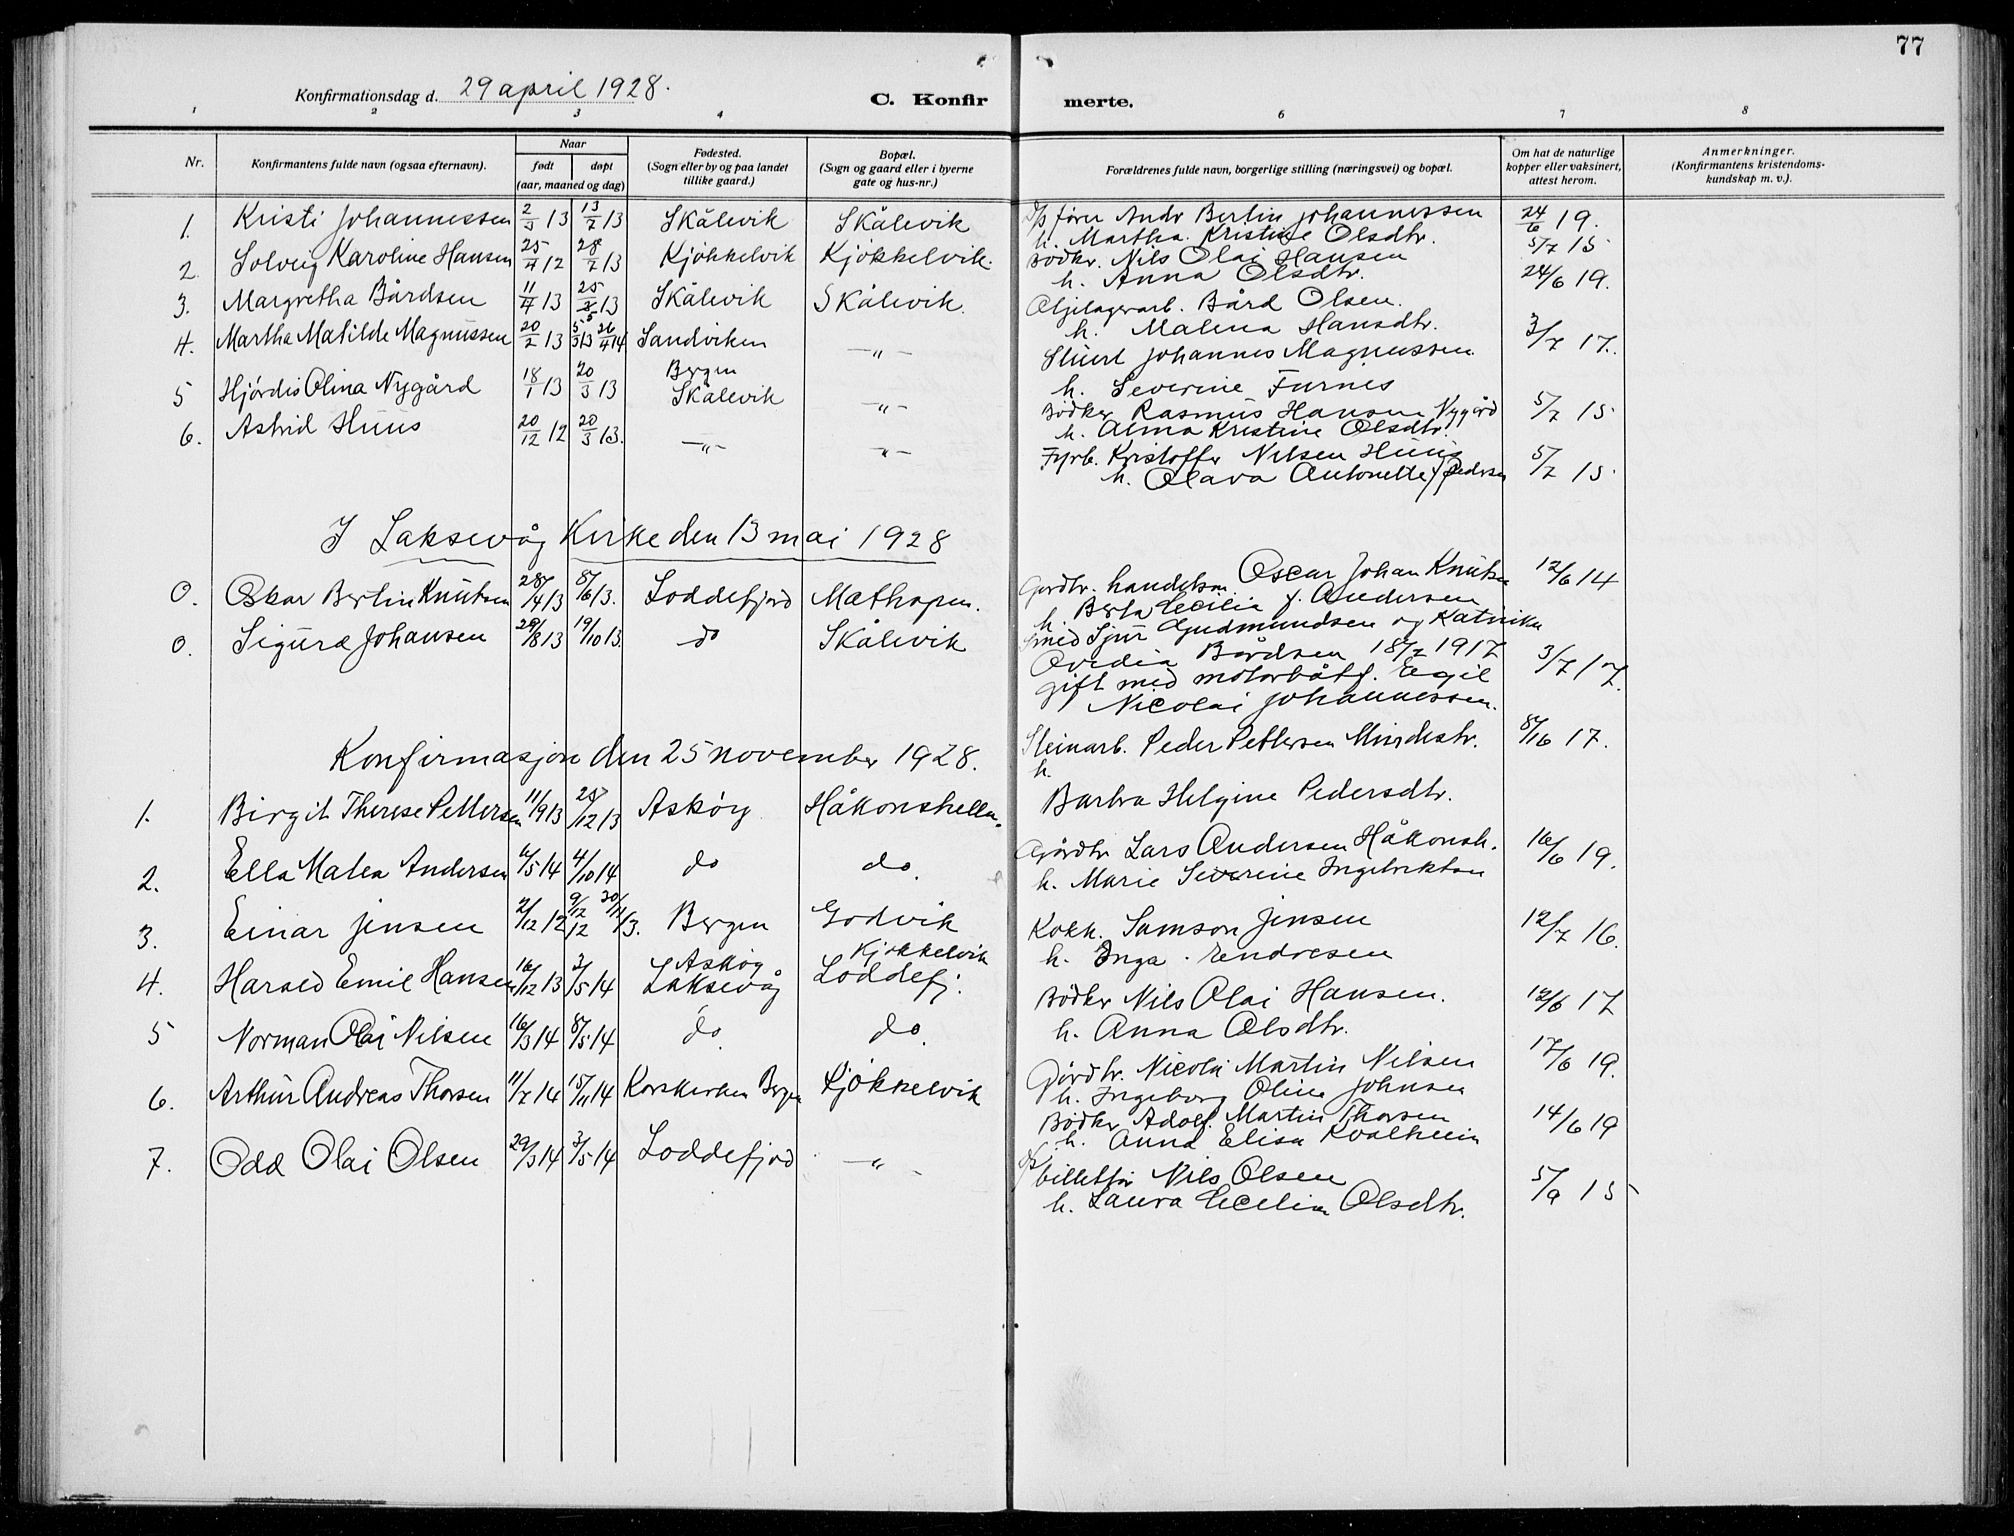 77
Konfirmationsdag d. 29 april 1928.
C. Konfirmerte.
1 2 3 4 6 7 8
Nr.
Konfirmantens fulde navn (ogsaa efternavn).
Naar
født døpt
(aar, maaned og dag)
Fødested.
(Sogn eller by og paa landet
tillike gaard.)
Bopæl.
(Sogn og gaard eller i byerne
gate og hus-nr.)
Forældrenes fulde navn, borgerlige stilling (næringsvei) og bopæl.
Om hat de naturlige
kopper eller vaksinert,
attest herom.
Anmerkninger.
(Konfirmantens kristendoms-
kundskap m. v.).
1. Kristi Johannessen 2/3 13 13/7 13 Skålevik Skålevik D/s fører Andr Bertin Johannessen 24/6 19.
h. Martha Kristine Olsdtr.
2. Solveig Karoline Hansen 25/4 12 28/7 13 Kjøkkelvik Kjøkkelvik. Bødker. Nils Olai Hansen 5/7 15
h. Anna Olsdtr.
3. Margretha Bårdsen 11/4 13 25/5 13 Skålevik Skålevik. Oljelagerarb. Bård Olsen. 24/6 19.
h. Malena Hansdtr.
4. Martha Matilde Magnussen 20/2 13 5/3 13 26/4 14 Sandviken Bergen —„— Stuert Johannes Magnussen 3/7 17.
h. Severine Furnes
5 Hjørdis Olina Nygård 18/1 13 20/3 13 Skålevik —„— Bødker Rasmus Hansen Nygård 5/7 15
h. Alma Kristine Olsdtr.
6. Astrid Huus 20/12 12 20/3 13. —„— —„— Fyrb. Kristoffer Nilsen Huus 5/7 15
h. Olava Antonette f Pedersen
I Laksevåg Kirke den 13 mai 1928
0. Oskar Bertin Knutsen 28/4 13 8/6 13. Loddefjord Mathopen. Gørdbr. handelsm. Oscar Johan Knutsen 12/6 14
h. Berta Cecilia f. Andersen
0. Sigurd Johansen 29/8 13 19/10 13. do Skålevik Smed Sjur Gudmundsen og Katrine
Ovedia Bårdsen 18/7 1917 3/7 17.
gift med motorbåtf. Egil
Nicolai Johannessen.
Konfirmasjon den 25 november 1928.
1. Birgit Therese Pettersen 11/9 13 25/12 13 Askøy Håkonshella. Steinarb. Peder Pettersen Mindestr. 8/16 17.
h.
Barbra Helgine Pedersdtr.
2. Ella Matea Andersen 6/5 14 4/10 14 do do. Gårdbr Lars Andersen Håkonsh. 16/6 19.
h. Marie Severine Ingebriktsen
3. Einar Jensen 2/12 12 9/12 12 30/11 13. Bergen Godvik Kokk. Samson Jensen 12/7 16.
h. Inga Endresen
4. Harald Emil Hansen 16/12 13 3/5 14 Askøy Laksevåg Kjøkkelvik Loddefj. Bødker Nils Olai Hansen. 12/6 17
h. Anna Olsdtr.
5 Norman Olai Nilsen 16/3 14 8/5 14 do. do. Gårdbr. Nicolai Martin Nilsen 17/6 19.
h. Ingeborg Oline Johnsen
6. Arthur Andreas Thorsen 11/7 14 15/11 14 Korskirken Bergen Kjøkkelvik Bødker Adolf Martin Thorsen 14/6 19
h. Anna Elisa Kvalheim
7. Odd Olai Olsen 29/3 14 3/5 14 Loddefjord —„— D/s billettør Nils Olsen 5/9 15
h. Laura Cecilia Olsdtr.